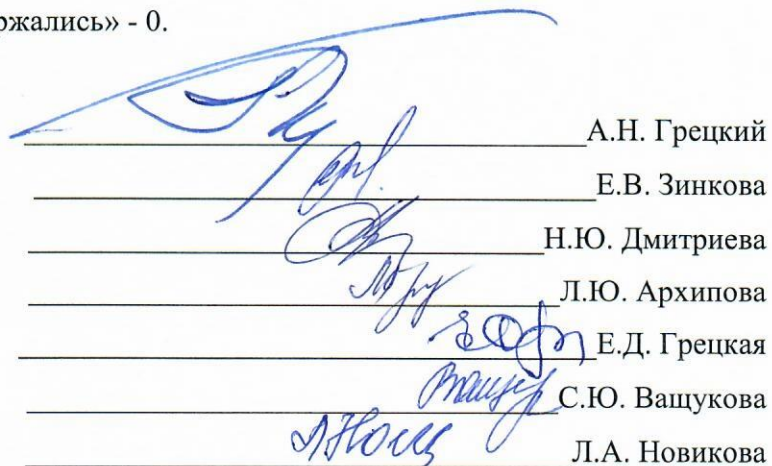 ржались» - 0.
А.Н. Грецкий
Е.В. Зинкова
Н.Ю. Дмитриева
Л.Ю. Архипова
Е.Д. Грецкая
С.Ю. Ващукова
Л.А. Новикова